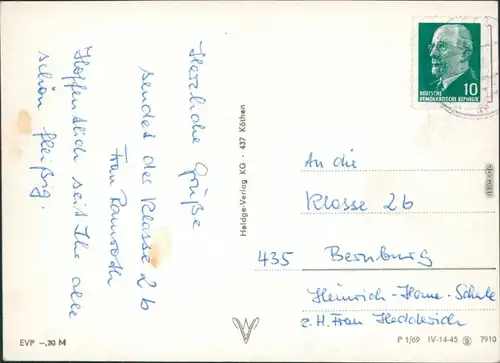 Herzliche Grüße
sendet der Klasse 2b
Frau Ramroth
Hoffentlich seit Ihr alle
schön fleißig.
Heldge-Verlag KG · 437 Köthen
10
DEUTSCHE
DEMOKRATISCHE REPUBLIK
An die
Klasse 2b
435 Bernburg
Heinrich-Heine-Schule
z.H. Frau Hedderich
EVP –,30 M
P 1/69 IV-14-45 7910